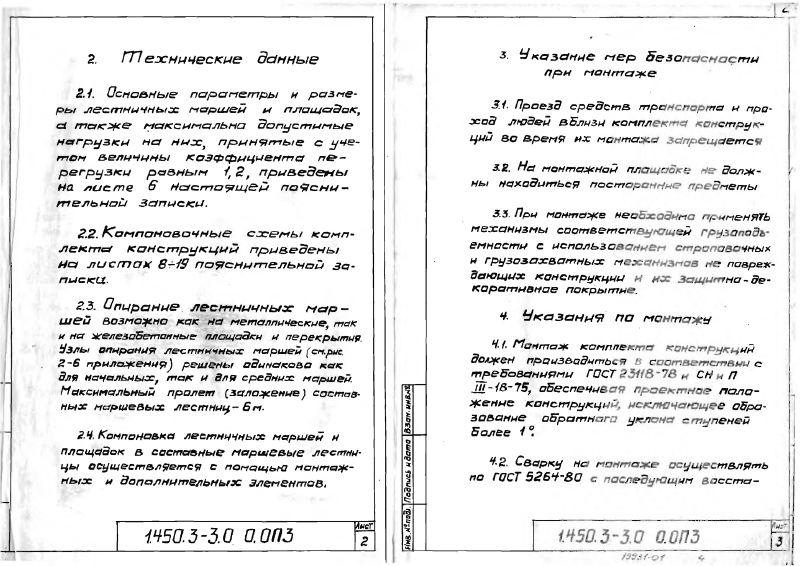 2. Технические данные
2.1. Основные параметры и разме-
ры лестничных маршей и площадок,
а также максимально допустимые
нагрузки на них, принятые с уче-
том величины коэффициента пе-
регрузки равным 1,2, приведены
на листе 6 настоящей поясни-
тельной записки.
2.2. Компоновочные схемы комп-
лекта конструкций приведены
на листах 8÷19 пояснительной за-
писки.
2.3. Опирание лестничных мар-
шей возможно как на металлические, так
и на железобетонные площадки и перекрытия.
Узлы опирания лестничных маршей (см.рис.
2-6 приложения) решены одинаково как
для начальных, так и для средних маршей.
Максимальный пролет (заложение) состав-
ных маршевых лестниц - 6м.
2.4. Компоновка лестничных маршей и
площадок в составные маршевые лестни-
цы осуществляется с помощью монтаж-
ных и дополнительных элементов.
1.450.3-3.0 0.0ПЗ
Лист
2
2
3. Указание мер безопасности
при монтаже
3.1. Проезд средств транспорта и про-
ход людей вблизи комплекта конструк-
ций во время их монтажа запрещается
3.2. На монтажной площадке не долж-
ны находиться посторонние предметы
3.3. При монтаже необходимо применять
механизмы соответствующей грузоподъ-
емности с использованием строповочных
и грузозахватных механизмов не повреж-
дающих конструкции и их защитно-де-
коративное покрытие.
4. Указания по монтажу
4.1. Монтаж комплекта конструкций
должен производиться в соответствии с
требованиями ГОСТ 23118-78 и СН и П
III-18-75, обеспечивая проектное поло-
жение конструкций, исключающее обра-
зование обратного уклона ступеней
более 1°.
4.2. Сварку на монтаже осуществлять
по ГОСТ 5264-80 с последующим восста-
Взам. инв. №
Подпись и дата
Инв. № подл.
1.450.3-3.0 0.0ПЗ
Лист
3
19931-01 4